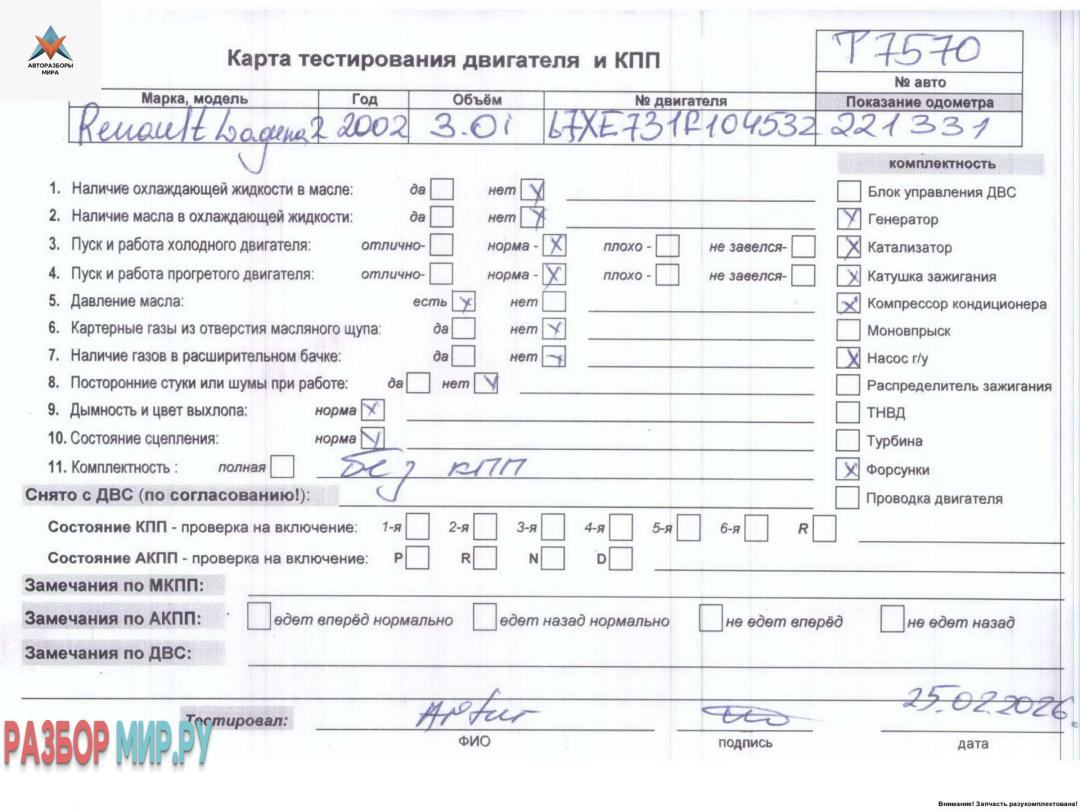 АВТОРАЗБОРЫ
МИРА
Карта тестирования двигателя и КПП
T7570
№ авто
Марка, модель Год Объём № двигателя Показание одометра
Renault Laguna 2 2002 3.0i L7XE731R104532 221331
комплектность
1. Наличие охлаждающей жидкости в масле: да нет
Блок управления ДВС
2. Наличие масла в охлаждающей жидкости: да нет
Генератор
3. Пуск и работа холодного двигателя: отлично- норма - плохо - не завелся-
Катализатор
4. Пуск и работа прогретого двигателя: отлично- норма - плохо - не завелся-
Катушка зажигания
5. Давление масла: есть нет
Компрессор кондиционера
6. Картерные газы из отверстия масляного щупа: да нет
Моновпрыск
7. Наличие газов в расширительном бачке: да нет
Насос г/у
8. Посторонние стуки или шумы при работе: да нет
Распределитель зажигания
9. Дымность и цвет выхлопа: норма
ТНВД
10. Состояние сцепления: норма
Турбина
11. Комплектность : полная без кпп
Форсунки
Снято с ДВС (по согласованию!):
Проводка двигателя
Состояние КПП - проверка на включение: 1-я 2-я 3-я 4-я 5-я 6-я R
Состояние АКПП - проверка на включение: P R N D
Замечания по МКПП:
Замечания по АКПП: едет вперёд нормально едет назад нормально не едет вперёд не едет назад
Замечания по ДВС:
Тестировал: Artur 25.02.2026
ФИО подпись дата
РАЗБОРМИР.РУ
Внимание! Запчасть разукомплектована!